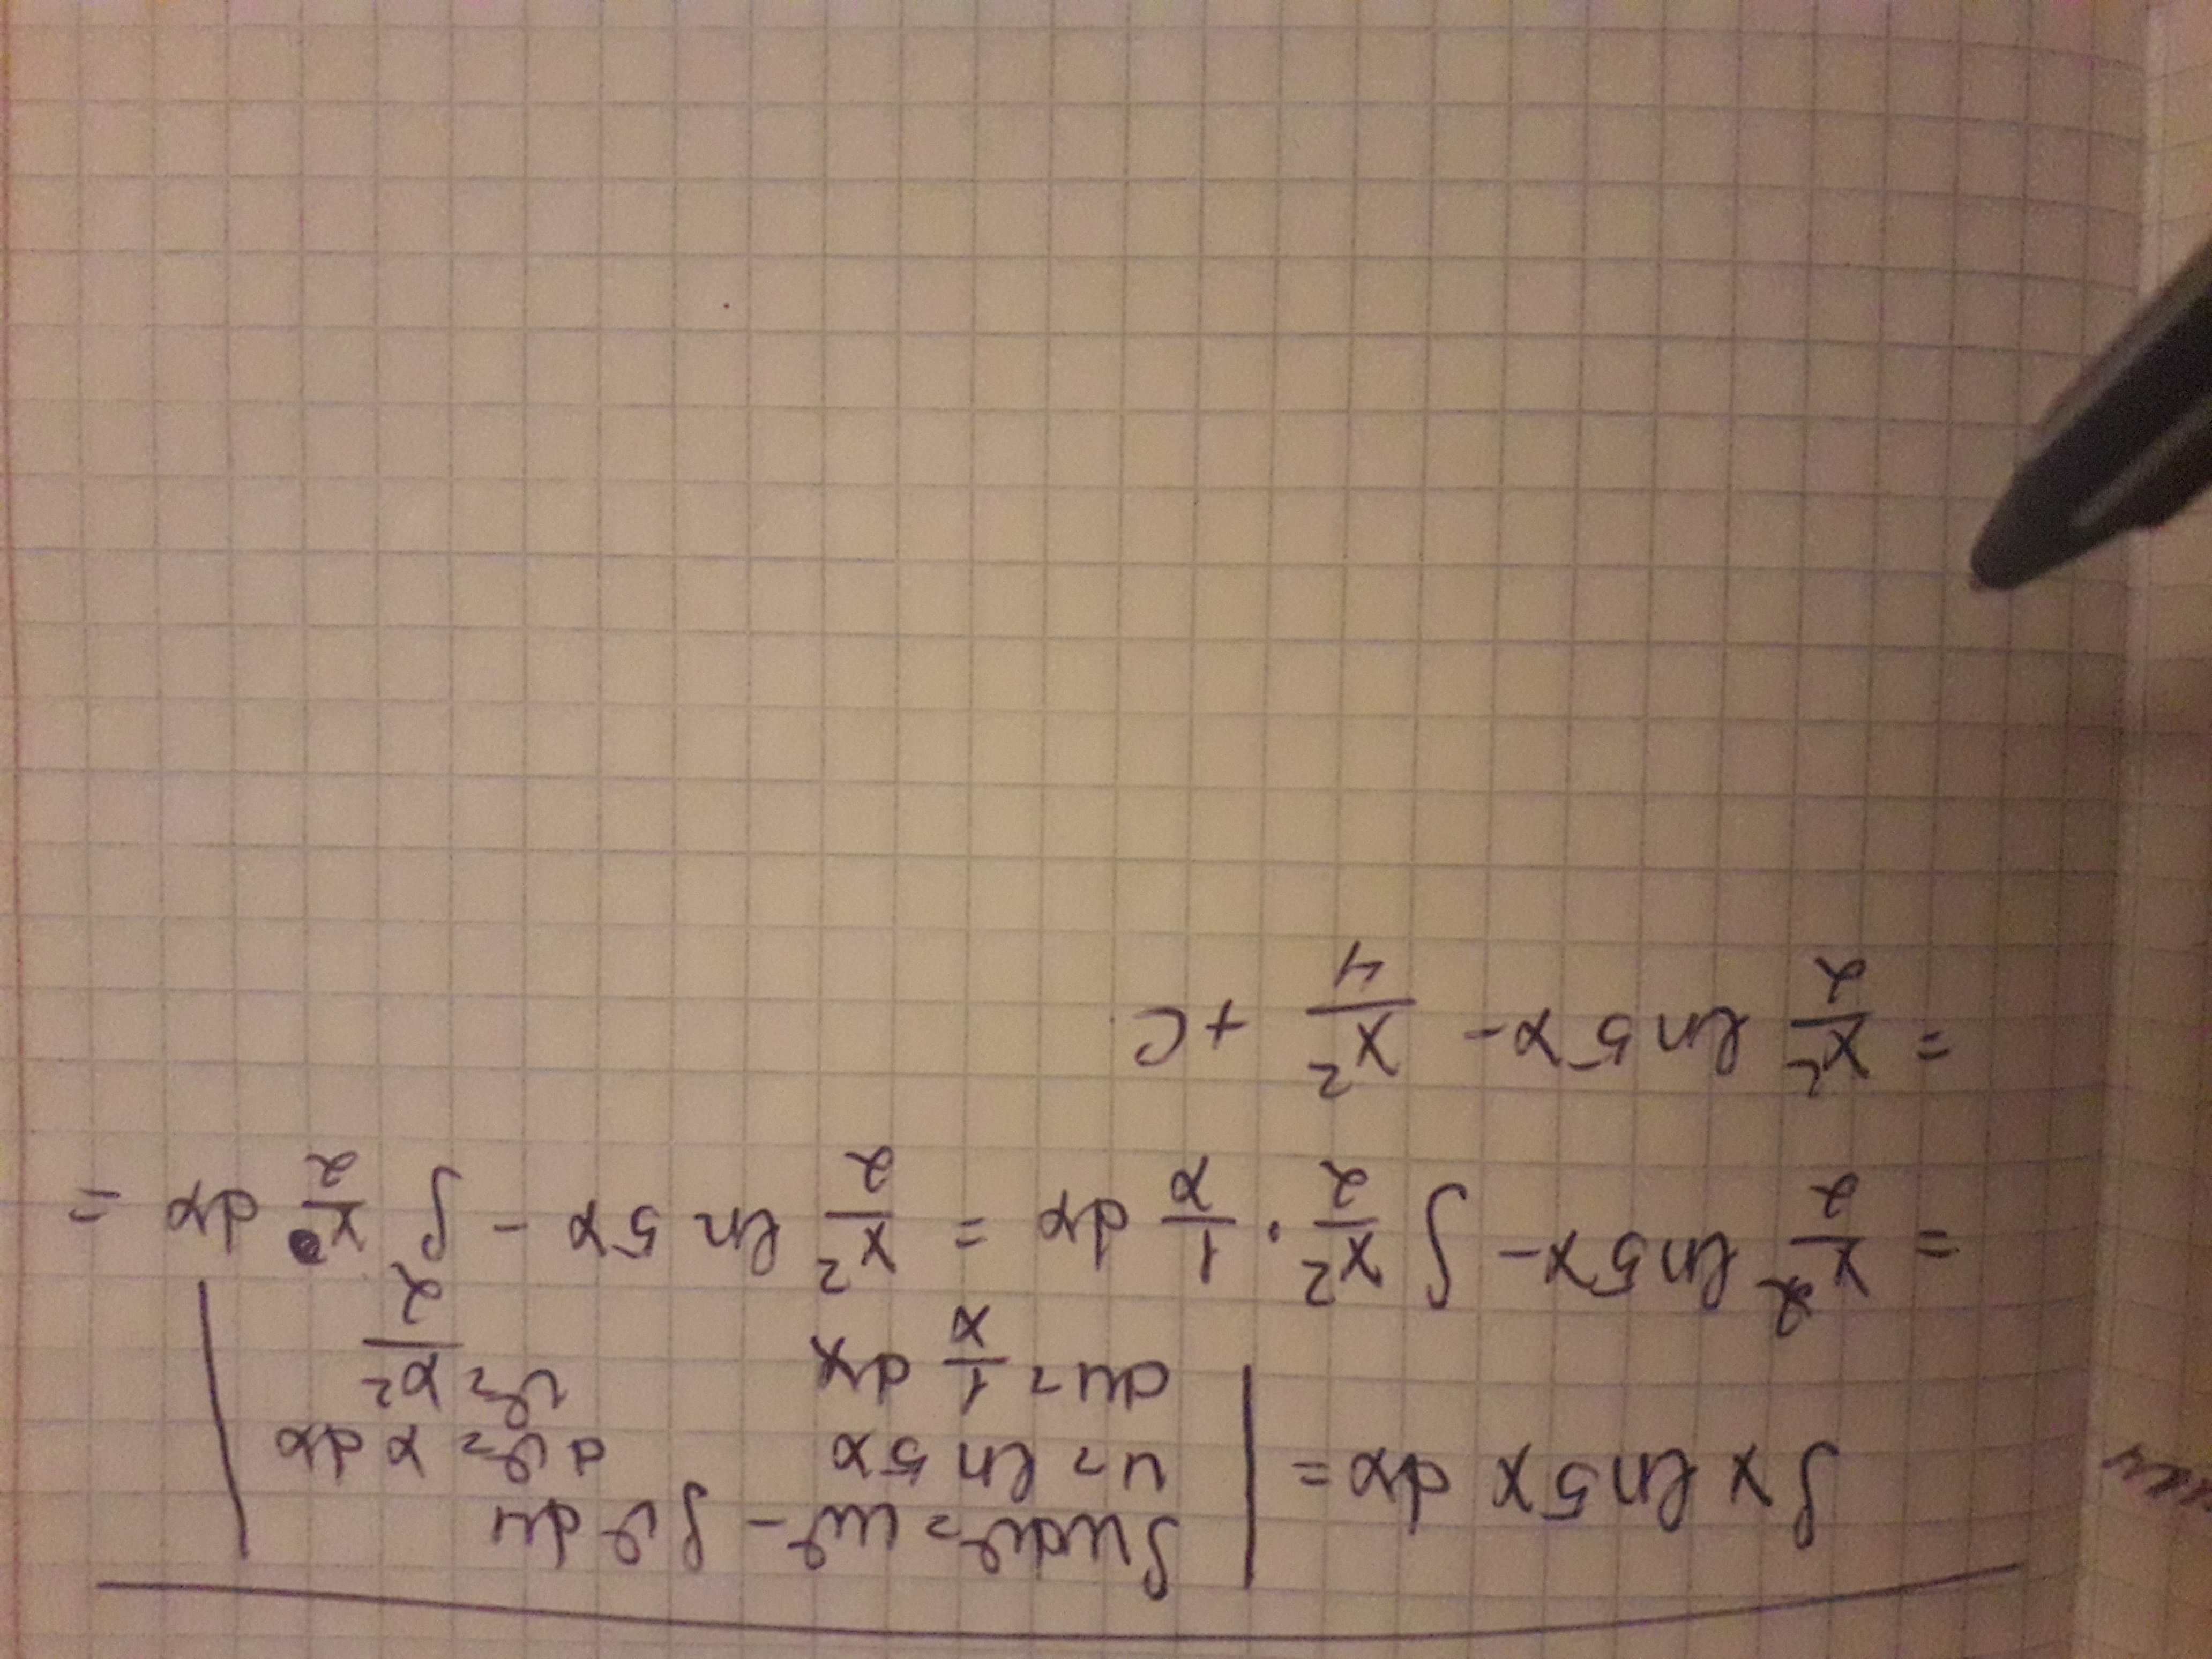 ∫udv = uv - ∫v du
∫x ln5x dx = | u = ln 5x dv = x dx |
du = 1/x dx v = x²/2
= x²/2 ln5x - ∫ x²/2 · 1/x dx = x²/2 ln 5x - ∫ x/2 dx =
= x²/2 ln5x - x²/4 + C